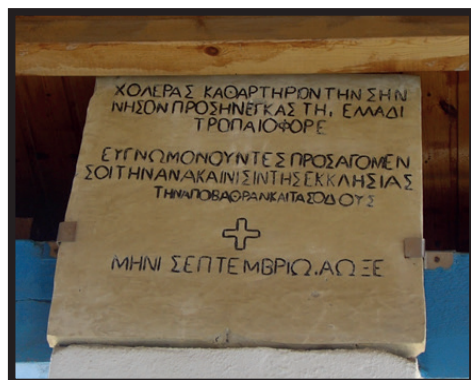 ΧΟΛΕΡΑΣ ΚΑΘΑΡΤΗΡΙΟΝ ΤΗΝ ΣΗΝ
ΝΗΣΟΝ ΠΡΟΣΗΝΕΓΚΑΣ ΤΗ, ΕΛΛΑΔΙ
ΤΡΟΠΑΙΟΦΟΡΕ
ΕΥΓΝΩΜΟΝΟΥΝΤΕΣ ΠΡΟΣΑΓΟΜΕΝ
ΣΟΙ ΤΗΝ ΑΝΑΚΑΙΝΙΣΙΝ ΤΗΣ ΕΚΚΛΗΣΙΑΣ
ΤΗΝ ΑΠΟΒΑΘΡΑΝ ΚΑΙ ΤΑΣ ΟΔΟΥΣ
ΜΗΝΙ ΣΕΠΤΕΜΒΡΙΩ. ΑΩΞΕ